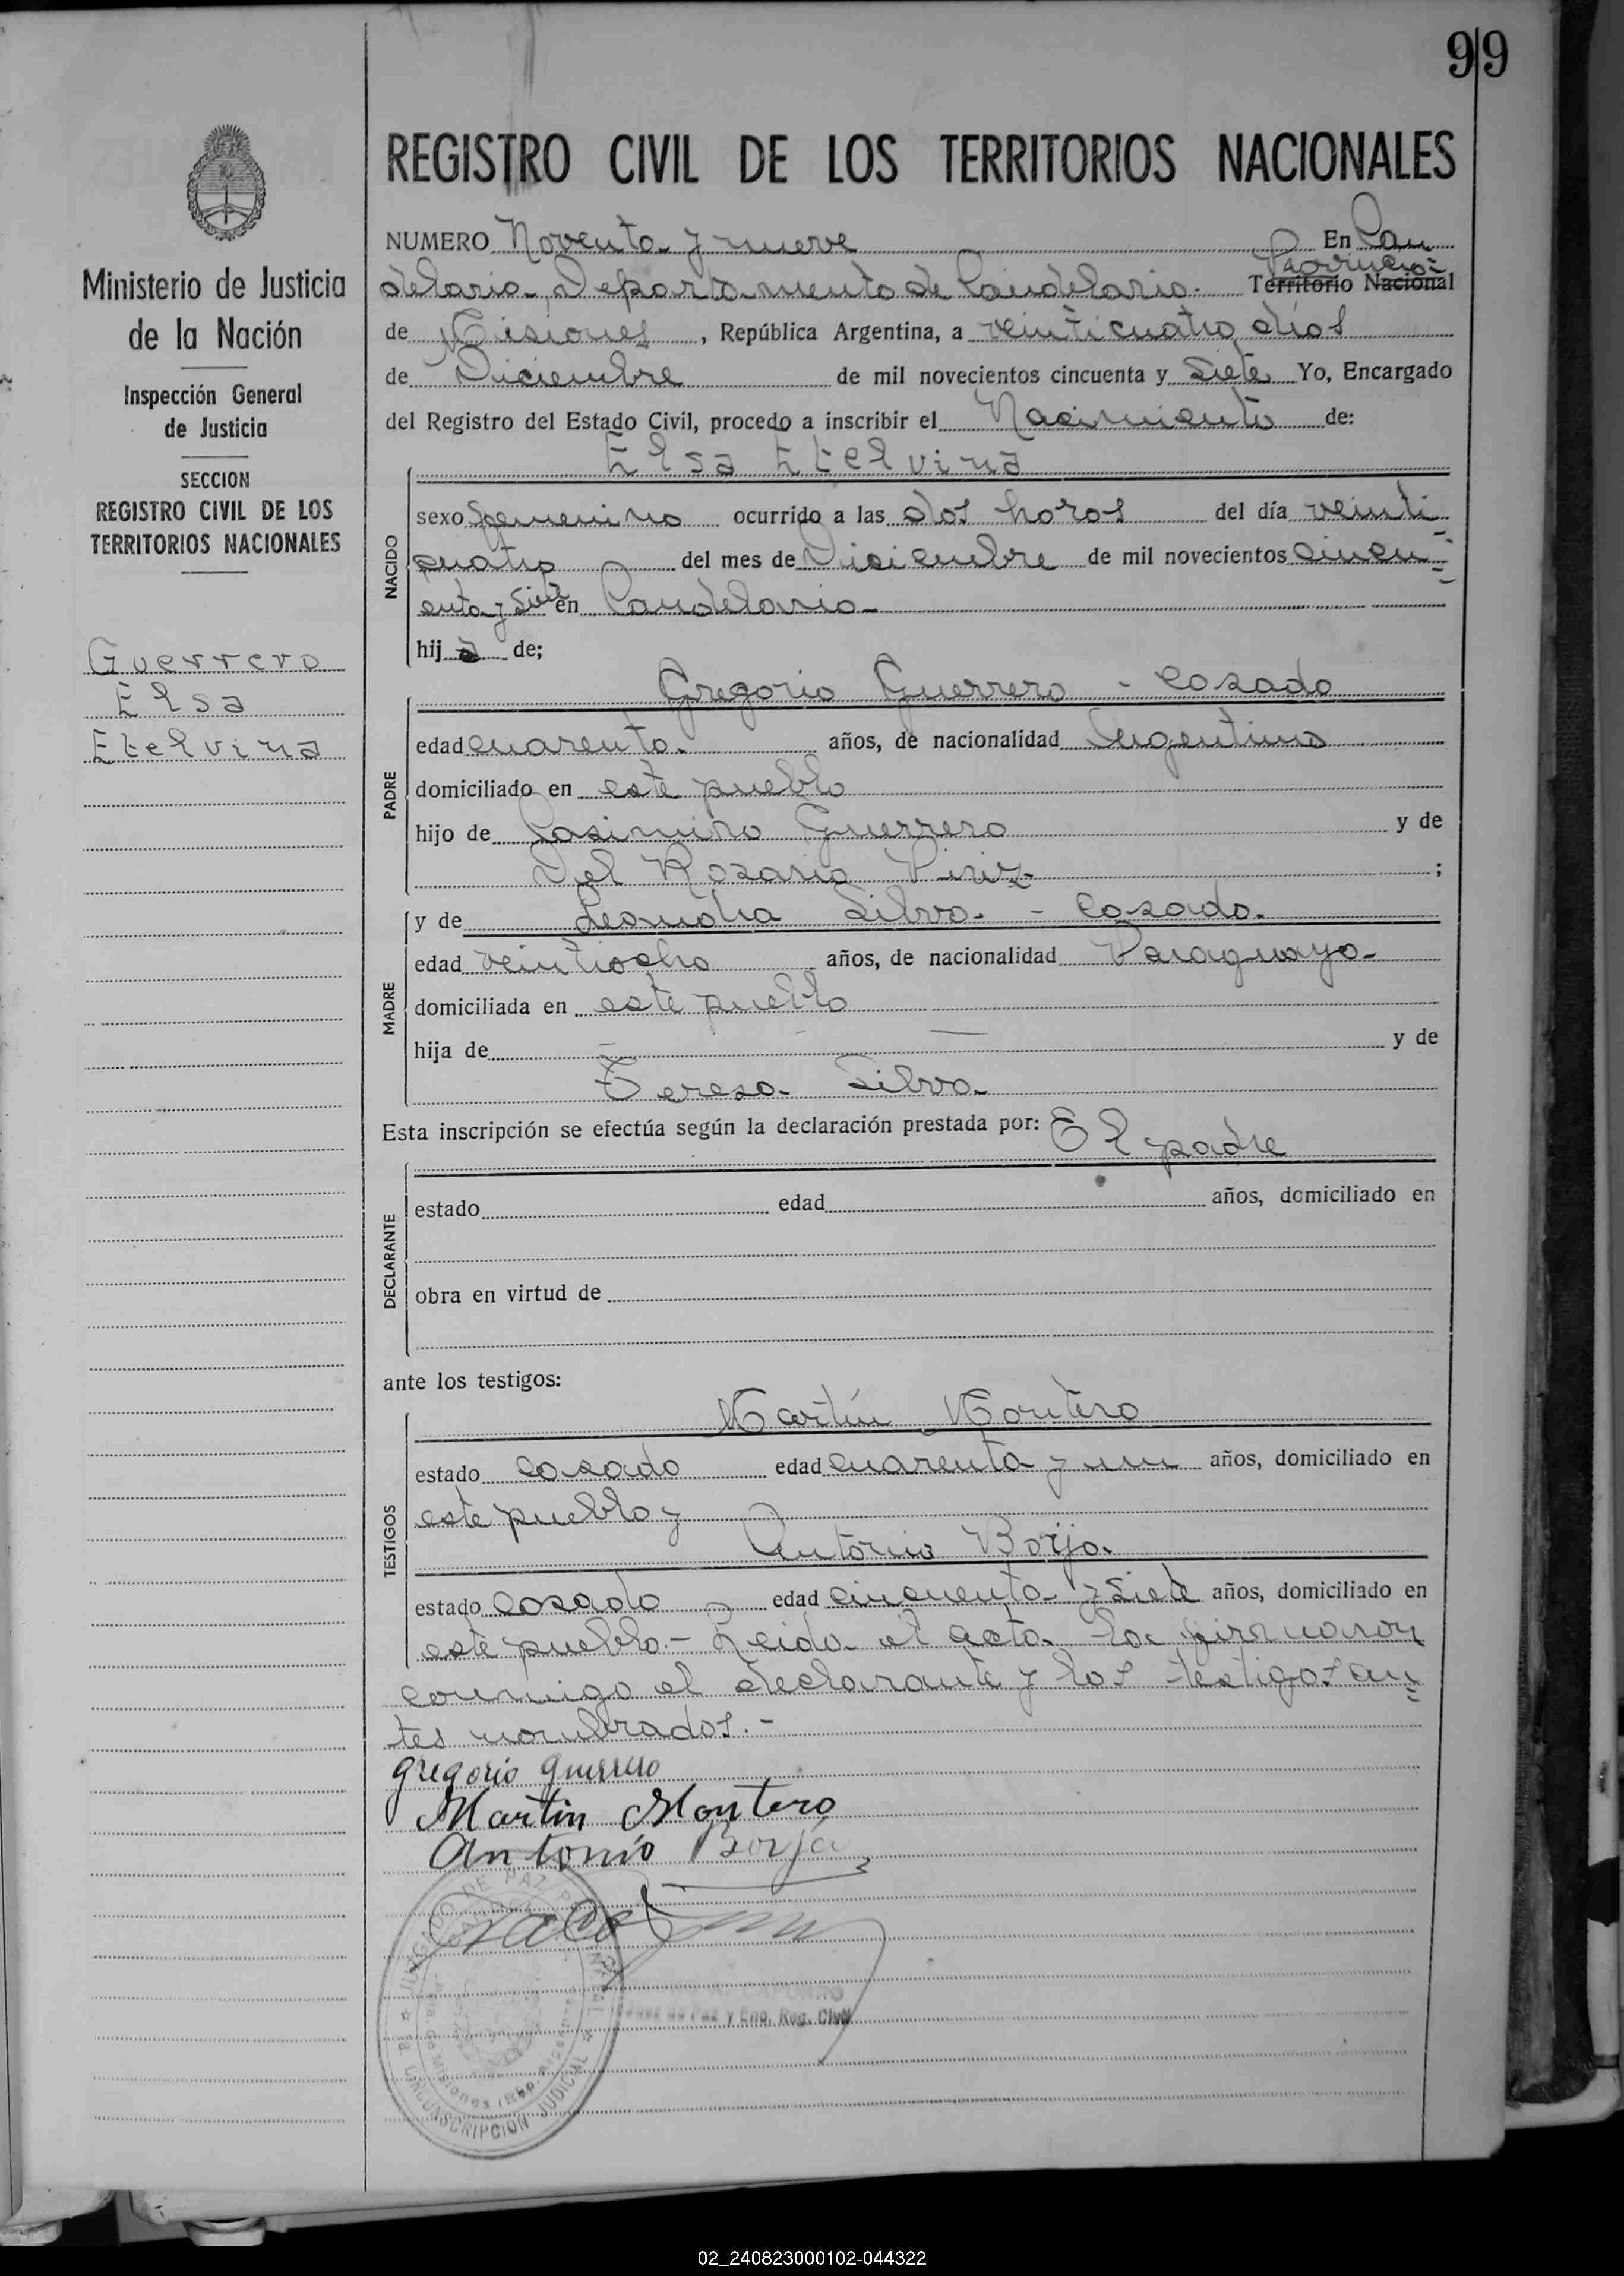 99
REGISTRO CIVIL DE LOS TERRITORIOS NACIONALES
Ministerio de Justicia
de la Nación
Inspección General
de Justicia
SECCION
REGISTRO CIVIL DE LOS
TERRITORIOS NACIONALES
Guerrero
Elsa
Etelvina
NUMERO Noventa y nueve En Can
Provincia
delaria Departamento de Candelaria Territorio Nacional
de Misiones, República Argentina, a veinticuatro días
de Diciembre de mil novecientos cincuenta y Siete Yo, Encargado
del Registro del Estado Civil, procedo a inscribir el Nacimiento de:
Elsa Etelvina
NACIDO
sexo femenino ocurrido a las dos horas del día veinti
cuatro del mes de Diciembre de mil novecientos cincu
enta y Siete en Candelaria
hij a de;
PADRE
Gregorio Guerrero - casado
edad cuarenta años, de nacionalidad Argentino
domiciliado en este pueblo
hijo de Casimiro Guerrero y de
Del Rosario Piriz ;
MADRE
y de Silva - casada
edad veintiocho años, de nacionalidad Paraguaya
domiciliada en este pueblo
hija de — y de
Teresa Silva
Esta inscripción se efectúa según la declaración prestada por: El padre
DECLARANTE
estado edad años, domiciliado en
obra en virtud de
ante los testigos:
TESTIGOS
Martín Montero
estado casado edad cuarenta y un años, domiciliado en
este pueblo y
Antonio Borja
estado casado edad cincuenta y Siete años, domiciliado en
este pueblo.- Leida el acta la firmaron
conmigo el declarante y los testigos an
tes nombrados.-
Gregorio Guerrero
Martin Montero
Antonio Borja
JUZGADO DE PAZ
CIRCUNSCRIPCION JUDICIAL
Juez de Paz y Enc. Reg. Civil
02_240823000102-044322